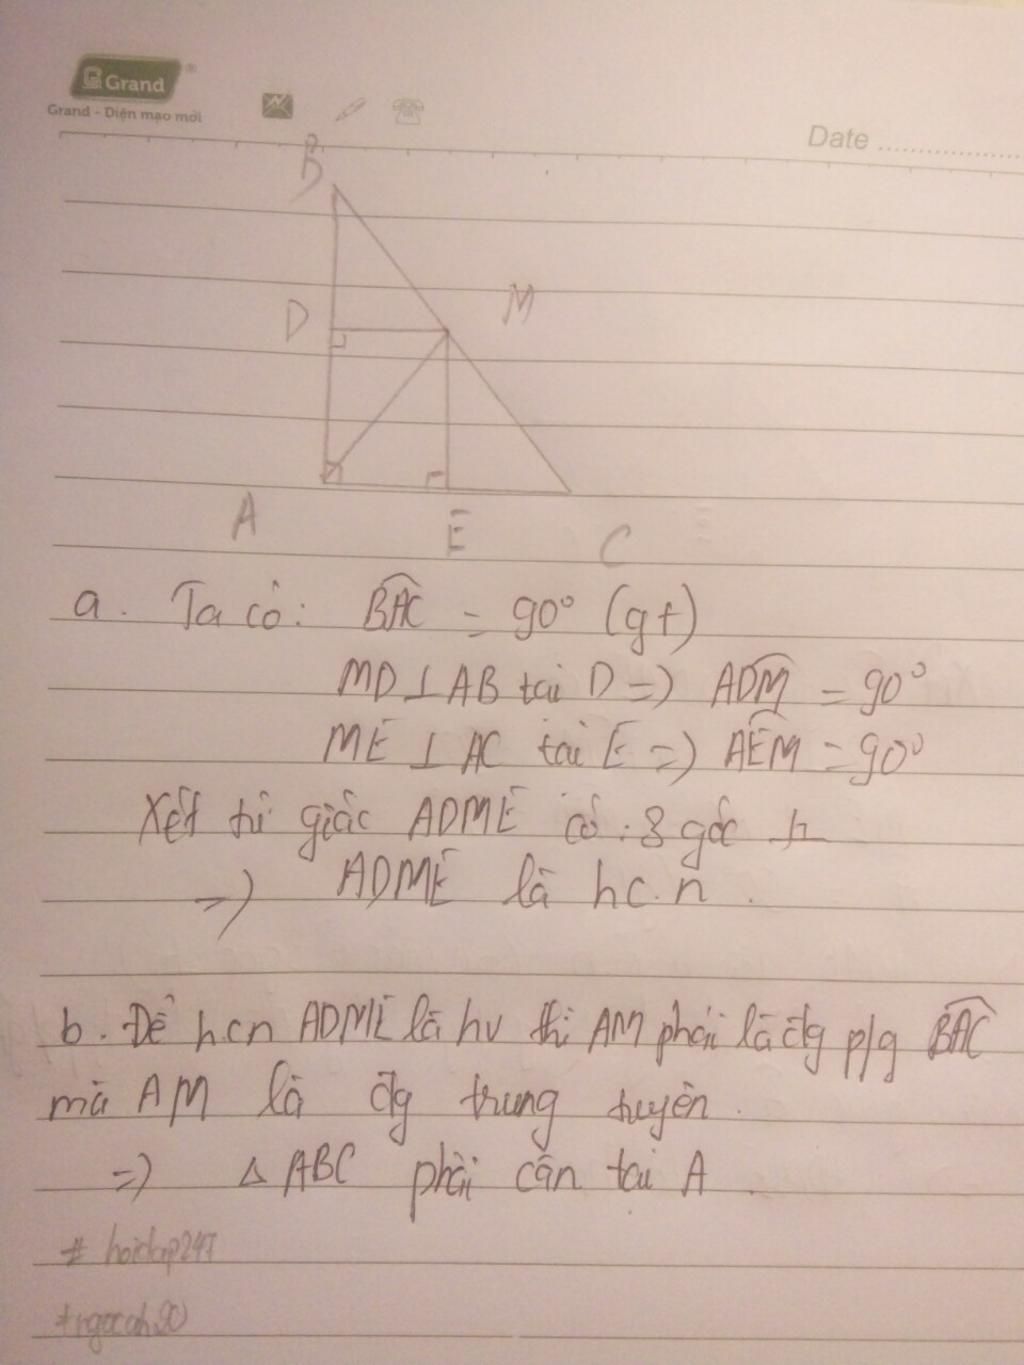 Grand
Grand - Diện mạo mới
Date
B
D
M
A
E
C
a. Ta có: BAC = 90° (gt)
MD ⊥ AB tại D => ADM = 90°
ME ⊥ AC tại E => AEM = 90°
Xét tứ giác ADME có: 3 góc
=> ADME là hc.n.
b. Để hcn ADME là hv thì AM phải là đg p/g BAC
mà AM là đg trung tuyến.
=> Δ ABC phải cân tại A.
# hoidap247